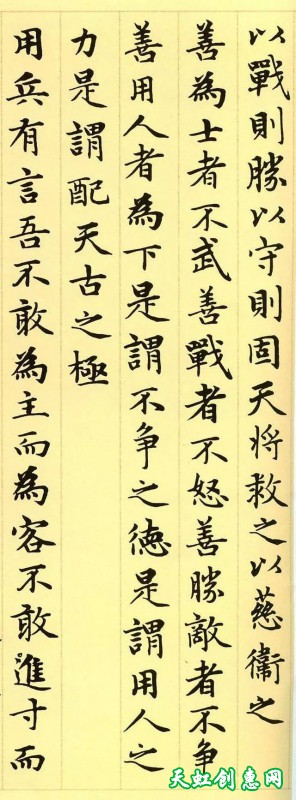 以戰則勝以守則固天将救之以慈衛之
善為士者不武善戰者不怒善勝敵者不争
善用人者為下是謂不争之德是謂用人之
力是謂配天古之極
用兵有言吾不敢為主而為客不敢進寸而
天虹创惠网